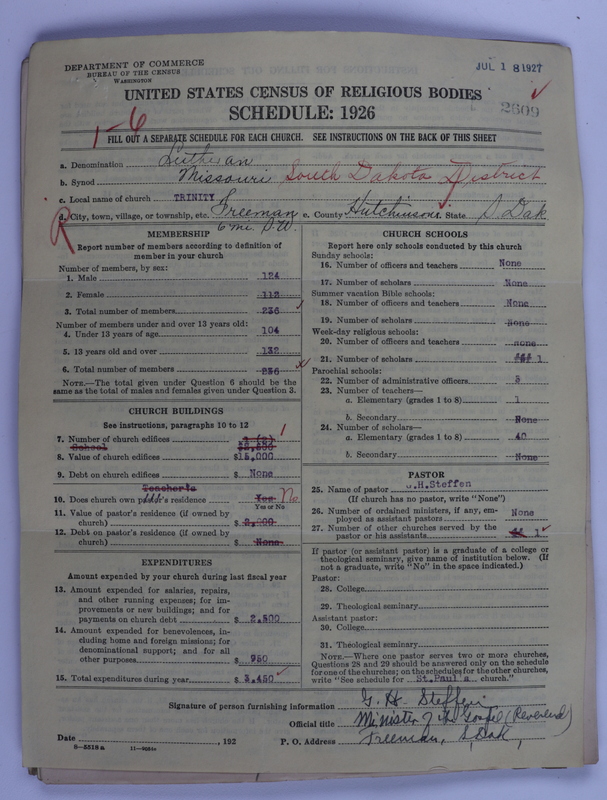 DEPARTMENT OF COMMERCE
BUREAU OF THE CENSUS
WASHINGTON
JUL 18 1927
UNITED STATES CENSUS OF RELIGIOUS BODIES
SCHEDULE: 1926
2609
1-6
FILL OUT A SEPARATE SCHEDULE FOR EACH CHURCH. SEE INSTRUCTIONS ON THE BACK OF THIS SHEET
a. Denomination Lutheran
b. Synod Missouri South Dakota District
c. Local name of church TRINITY
d. City, town, village, or township, etc. Freeman e. County Hutchinson f. State S. Dak
6 mi. S.W.
R
MEMBERSHIP
Report number of members according to definition of member in your church
Number of members, by sex:
1. Male 124
2. Female 112
3. Total number of members 236
Number of members under and over 13 years old:
4. Under 13 years of age 104
5. 13 years old and over 132
6. Total number of members 236
NOTE.—The total given under Question 6 should be the same as the total of males and females given under Question 3.
CHURCH BUILDINGS
See instructions, paragraphs 10 to 12
7. Number of church edifices 1 (2) 1
School
8. Value of church edifices $15,000
9. Debt on church edifices $ None
Teacher's
10. Does church own pastor's residence Yes No
Yes or No
11. Value of pastor's residence (if owned by church) $ 2,000
12. Debt on pastor's residence (if owned by church) $ None
EXPENDITURES
Amount expended by your church during last fiscal year
13. Amount expended for salaries, repairs, and other running expenses; for improvements or new buildings; and for payments on church debt $ 2,500
14. Amount expended for benevolences, including home and foreign missions; for denominational support; and for all other purposes $ 950
15. Total expenditures during year $ 3,450
CHURCH SCHOOLS
Report here only schools conducted by this church
Sunday schools:
16. Number of officers and teachers None
17. Number of scholars None
Summer vacation Bible schools:
18. Number of officers and teachers None
19. Number of scholars None
Week-day religious schools:
20. Number of officers and teachers None
21. Number of scholars 1
Parochial schools:
22. Number of administrative officers 3
23. Number of teachers—
a. Elementary (grades 1 to 8) 1
b. Secondary None
24. Number of scholars—
a. Elementary (grades 1 to 8) 40
b. Secondary None
PASTOR
25. Name of pastor G.H.Steffen
(If church has no pastor, write "None")
26. Number of ordained ministers, if any, employed as assistant pastors None
27. Number of other churches served by the pastor or his assistants 1
If pastor (or assistant pastor) is a graduate of a college or theological seminary, give name of institution below. (If not a graduate, write "No" in the space indicated.)
Pastor:
28. College
29. Theological seminary
Assistant pastor:
30. College
31. Theological seminary
NOTE.—Where one pastor serves two or more churches, Questions 28 and 29 should be answered only on the schedule for one of the churches; on the schedules for the other churches, write "See schedule for St.Paul's church."
Signature of person furnishing information G. H. Steffen
Official title Minister of the Gospel (Reverend)
Date , 192 P. O. Address Freeman, S. Dak,
8-5518a 11-9024